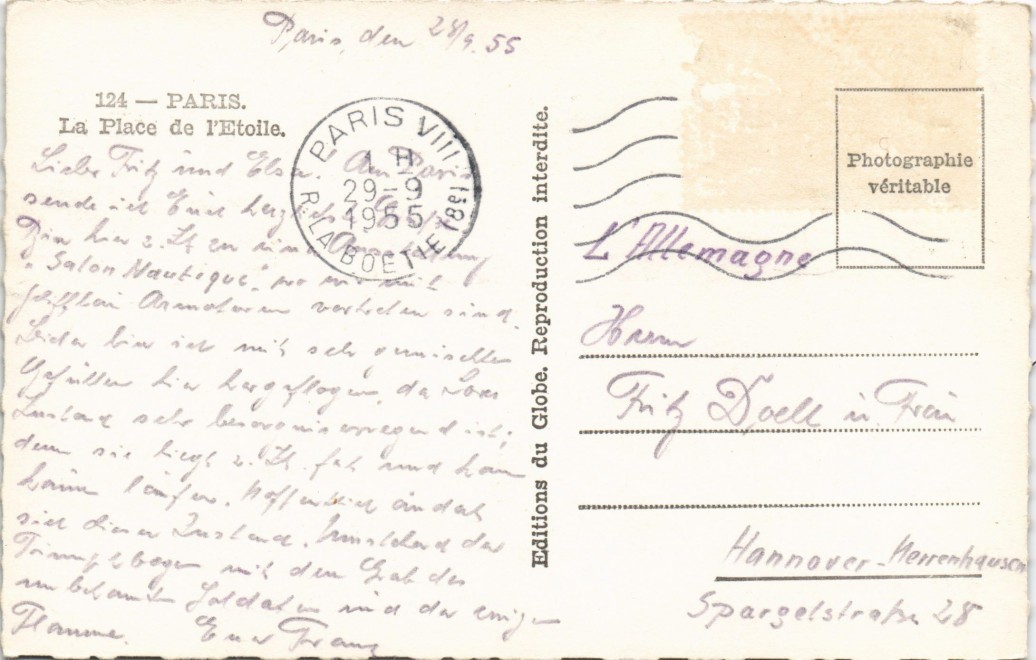 Paris, den 28/9.55
124 — PARIS.
La Place de l'Etoile.
PARIS VIII
1 H
29-9
1955
R. LA BOETIE
Liebe Fritz und Elsa! Aus Paris
sende ich Euch herzliche Grüße
Bin hier z. Zt. zu einer
"Salon Nautique", wo wir mit
Armaturen vertreten sind.
Leider bin ich mit sehr gemischten
Gefühlen hier hergeflogen, da
Zustand sehr besorgniserregend ist;
denn sie liegt z. Zt. fest und kann
kaum laufen. Hoffentlich ändert
sich dieser Zustand. Umstehend der
Triumphbogen mit dem Grab des
unbekannten Soldaten und der ewigen
Flamme. Euer Franz
Editions du Globe. Reproduction interdite.
Photographie
véritable
L'Allemagne
Herrn
Fritz Doell u. Frau
Hannover-Herrenhausen
Spargelstraße 28